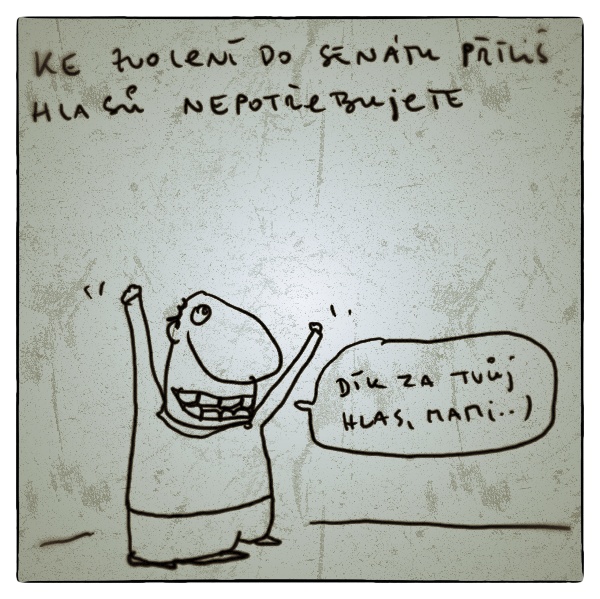 KE ZVOLENÍ DO SENÁTU PŘÍLIŠ
HLASŮ NEPOTŘEBUJETE
DÍK ZA TVŮJ
HLAS, MAMI..)